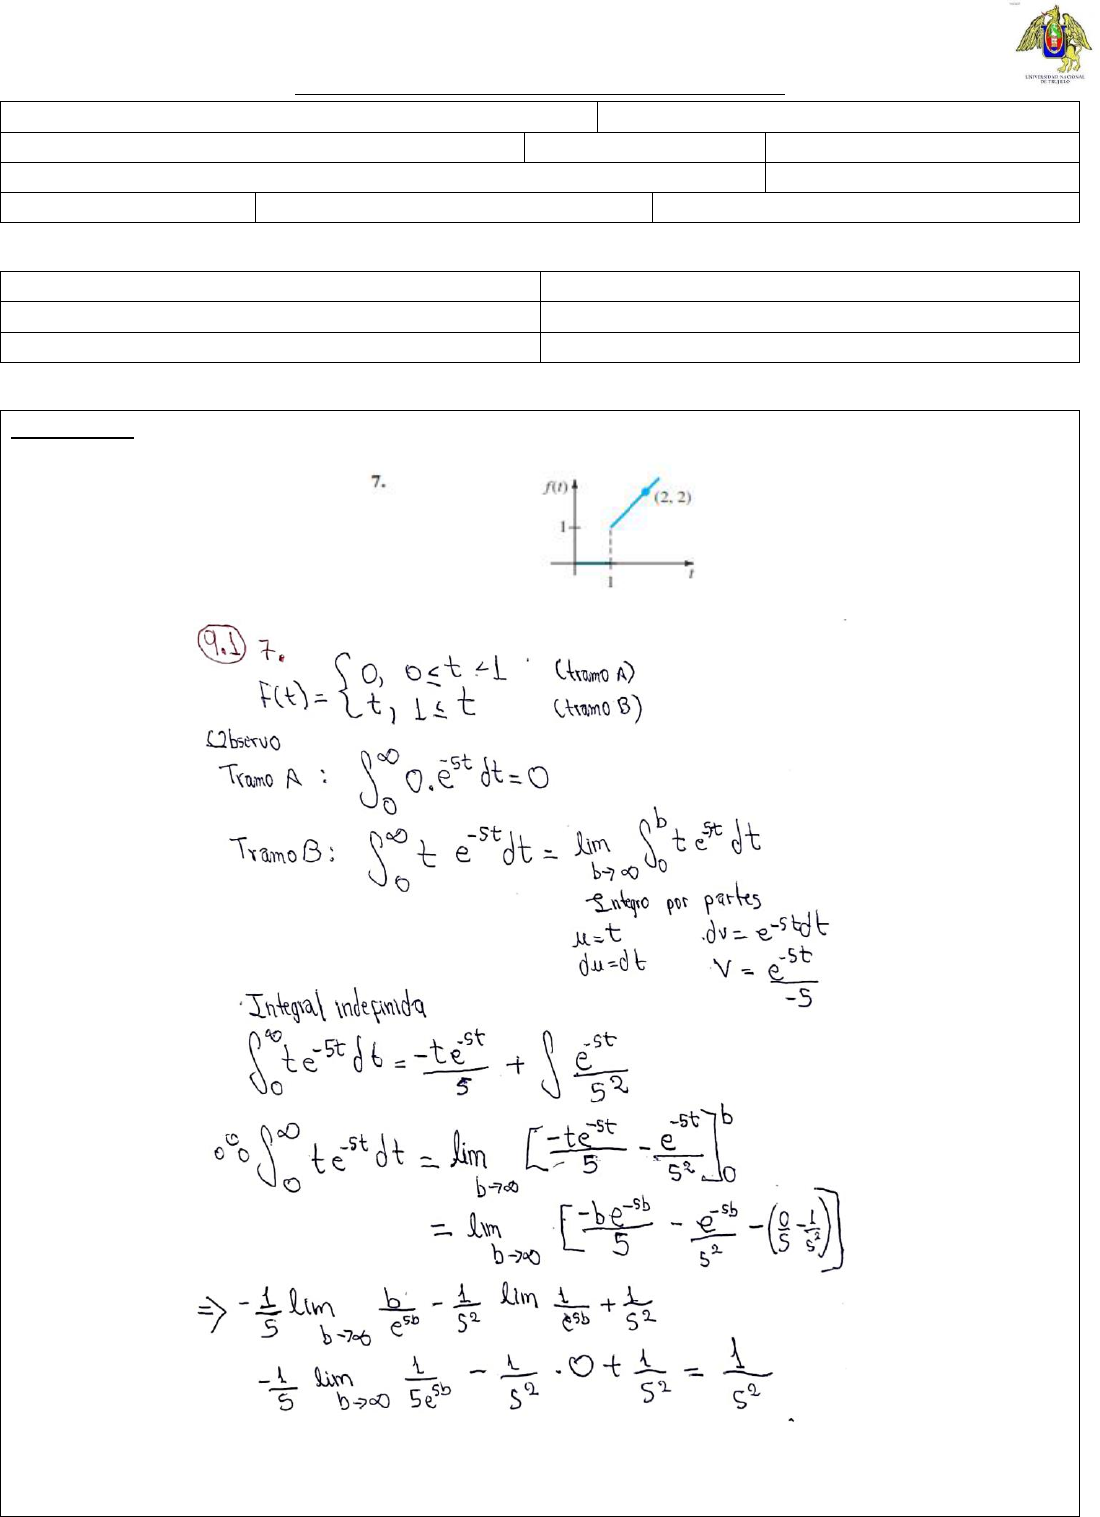 UNIVERSIDAD NACIONAL
DE TRUJILLO
7.
f(t)
(2, 2)
1
t
1
9.1 7.
F(t) = { 0, 0 ≤ t < 1 (tramo A)
t, 1 ≤ t (tramo B)
Observo
Tramo A : ∫₀^∞ 0.e^{-st} dt = 0
Tramo B : ∫₀^∞ t e^{-st} dt = lim_{b→∞} ∫₀^b t e^{st} dt
Integro por partes
u = t dv = e^{-st} dt
du = dt V = e^{-st}/-s
Integral indefinida
∫₀^∞ t e^{-st} dt = -t e^{-st}/s + ∫ e^{-st}/s²
∴ ∫₀^∞ t e^{-st} dt = lim_{b→∞} [-t e^{-st}/s - e^{-st}/s²]₀^b
= lim_{b→∞} [-b e^{-sb}/s - e^{-sb}/s² - (0/s - 1/s²)]
⇒ -1/s lim_{b→∞} b/e^{sb} - 1/s² lim 1/e^{sb} + 1/s²
-1/s lim_{b→∞} 1/se^{sb} - 1/s² . 0 + 1/s² = 1/s²